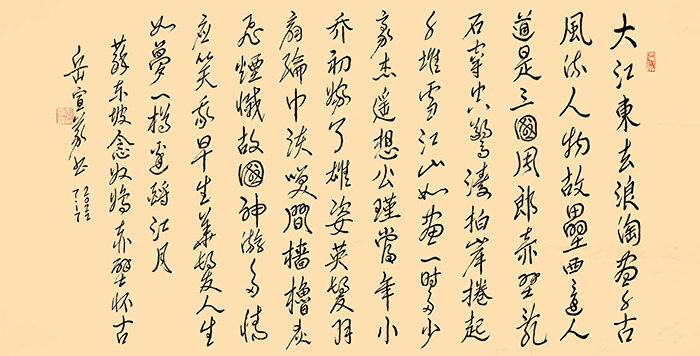 大江東去浪淘盡千古
風流人物故壘西邊人
道是三國周郎赤壁亂
石穿空驚濤拍岸捲起
千堆雪江山如畫一時多少
豪杰遙想公瑾當年小
乔初嫁了雄姿英髮羽
扇綸巾談笑間檣櫓灰
飛煙滅故國神游多情
應笑我早生華髮人生
如夢一樽還酹江月
蘇东坡念奴嬌赤壁怀古
岳宣義书